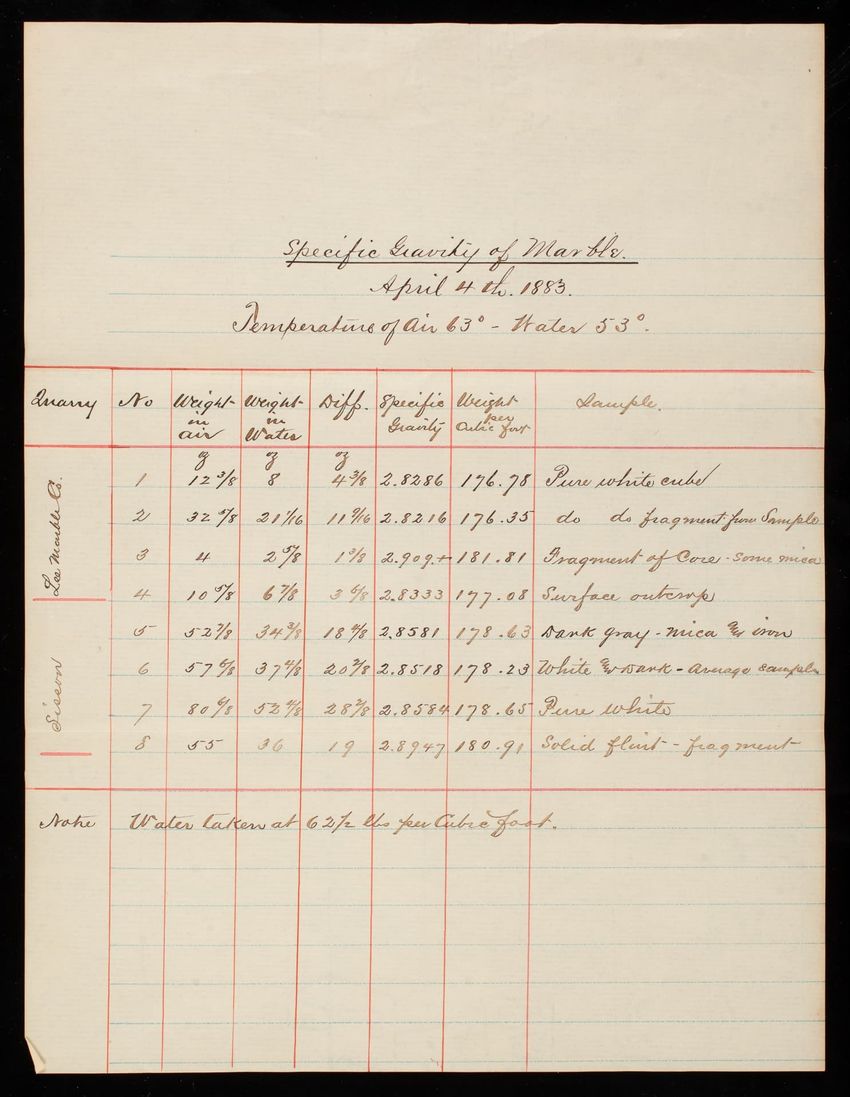 Specific Gravity of Marble.
April 4th. 1883.
Temperature of Air 63° - Water 53°.
Quarry No Weight in air Weight in Water Diff. Specific Gravity Weight per Cubic foot Sample.
oz oz oz
Lee Marble Co.
1 12 3/8 8 4 3/8 2.8286 176.78 Pure white cube
2 32 5/8 21 1/16 11 9/16 2.8216 176.35 do do fragment from Sample
3 4 2 5/8 1 3/8 2.909.+ 181.81 Fragment of Core - some mica
4 10 5/8 6 7/8 3 6/8 2.8333 177.08 Surface outcrop
Sisson
5 52 7/8 34 3/8 18 4/8 2.8581 178.63 Dark gray - mica & iron
6 57 6/8 37 4/8 20 2/8 2.8518 178.23 White & Dark - Average sample
7 80 6/8 52 4/8 28 2/8 2.8584 178.65 Pure white
8 55 36 19 2.8947 180.91 Solid flint - fragment
Note Water taken at 62 1/2 lbs per Cubic foot.